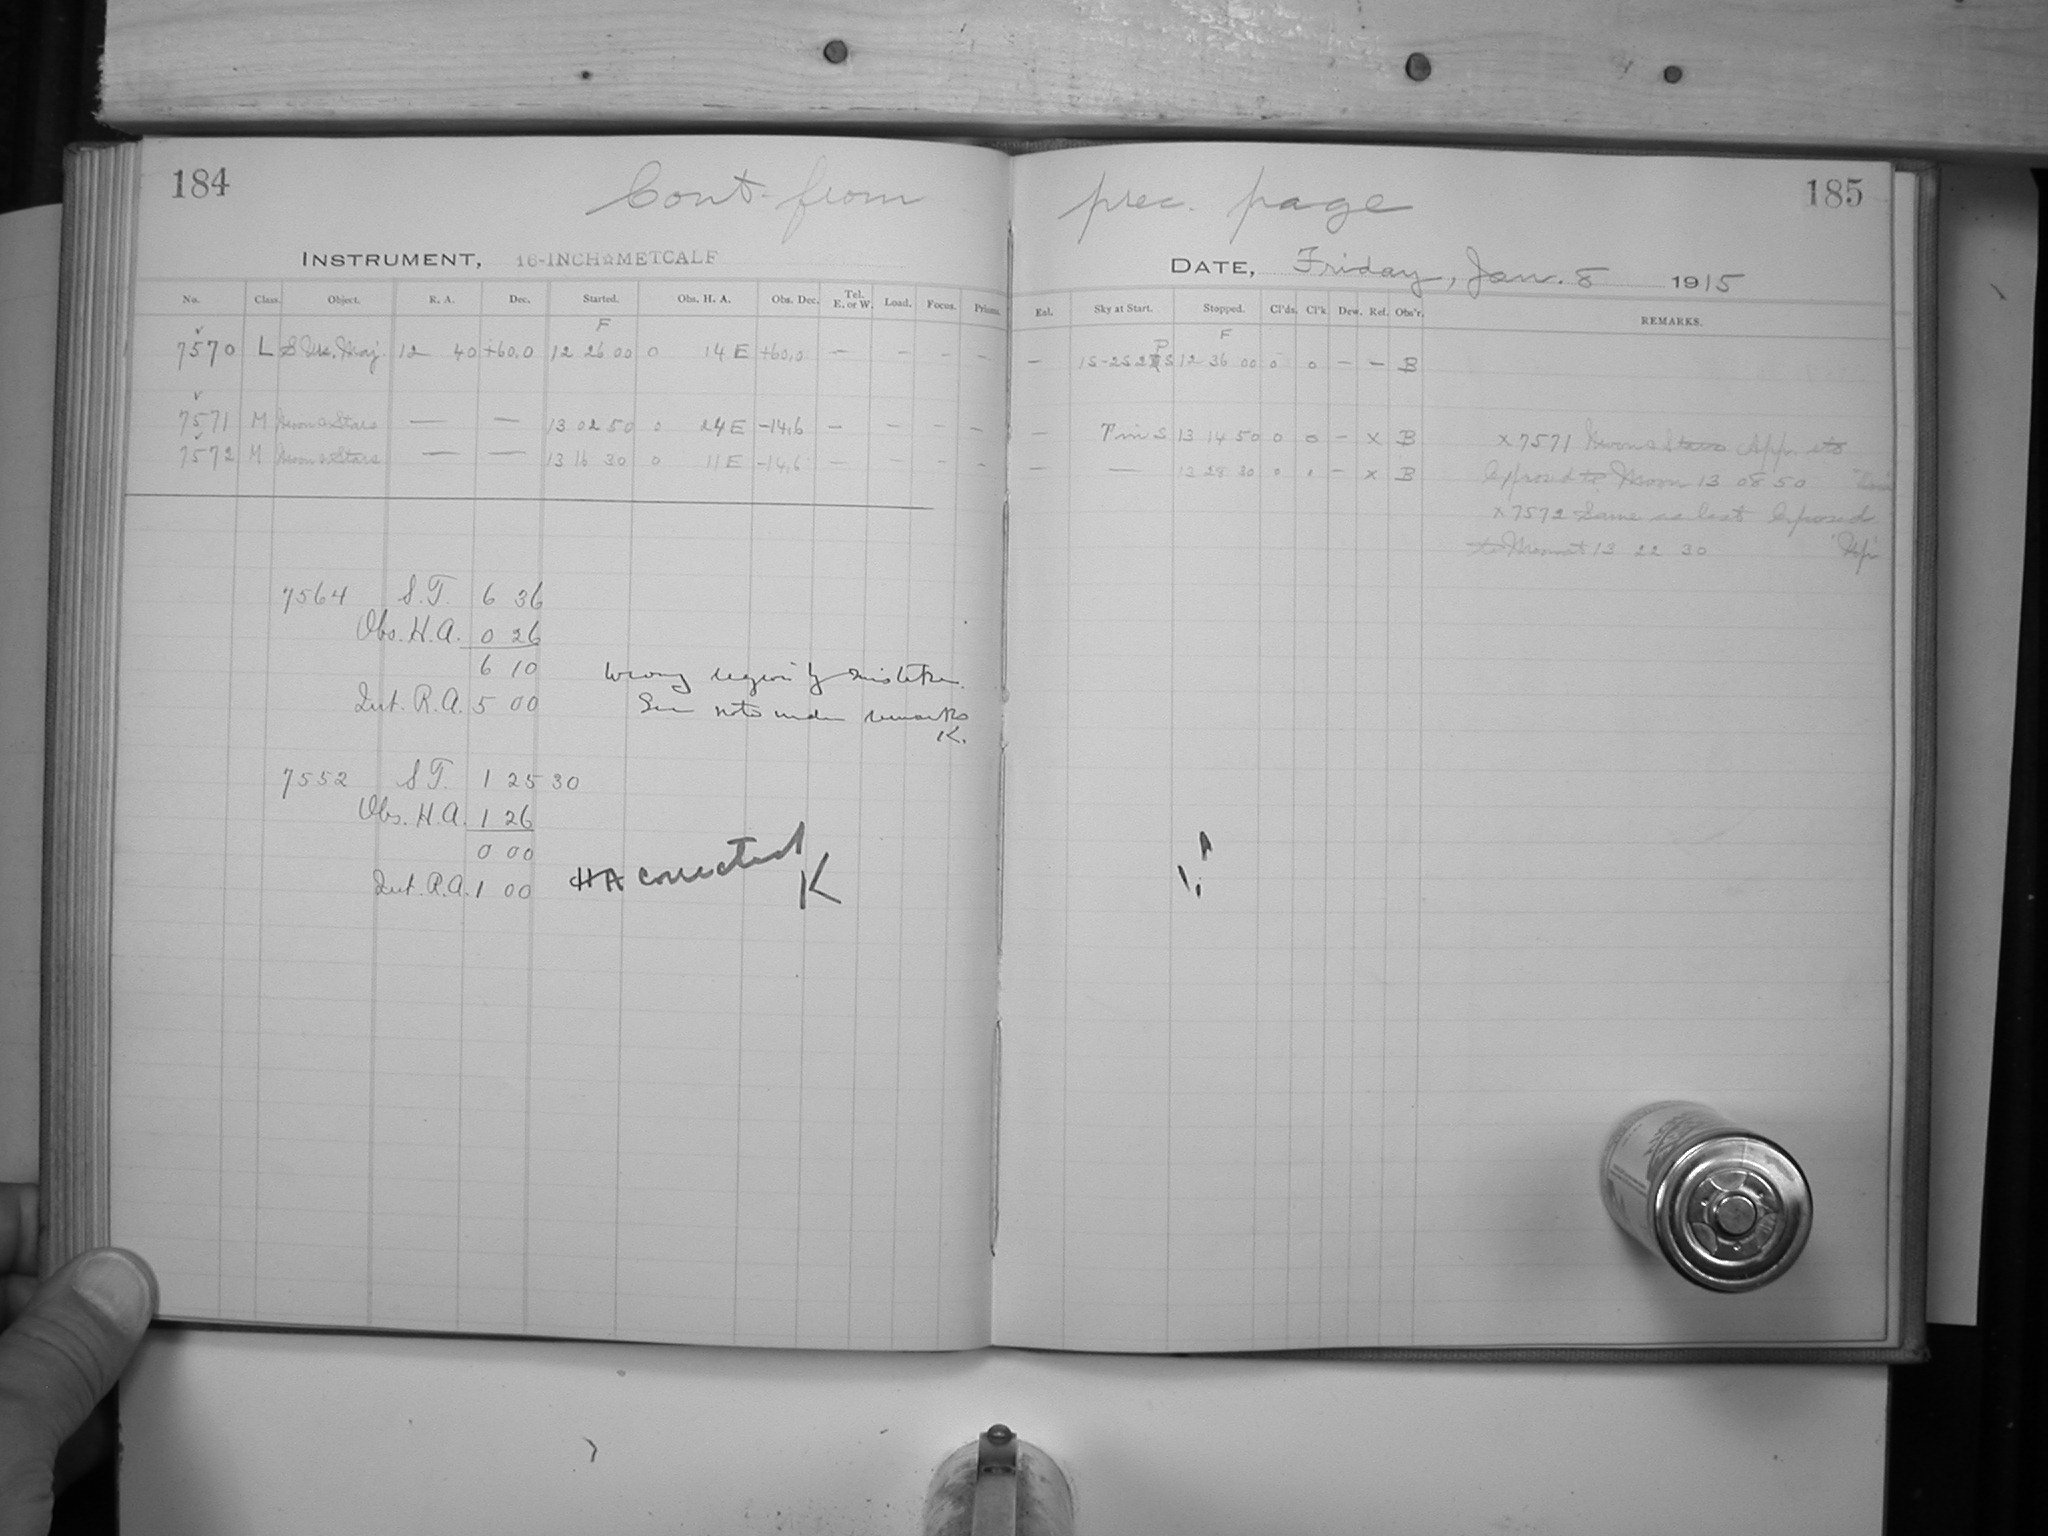 184
185
Cont. from prec. page
INSTRUMENT, 16-INCH METCALF
DATE, Friday, Jan. 8 1915
No. Class. Object. R. A. Dec. Started. Obs. H. A. Obs. Dec. Tel. E. or W. Load. Focus. Prisms. Enl. Sky at Start. Stopped. Cl'ds. Cl'k Dew. Ref. Obs'r. REMARKS.
F F
7570 L S Urs. Maj. 12 40 +60,0 12 26 00 0 14 E +60,0 — — — — — 1S-2S 2 S 12 36 00 0 0 — — B
7571 M Moon & Stars — — 13 02 50 0 24 E -14,6 — — — — — S 13 14 50 0 0 — x B x 7571 Moon & Stars App.
7572 M Moon & Stars — — 13 16 30 0 11 E -14,6 — — — — — — 13 28 30 0 0 — x B Exposed to Moon 13 08 50
x 7572 Same as last Exposed
to Moon at 13 22 30
7564 S.T. 6 36
Obs. H.A. 0 26
6 10 Wrong region by mistake.
Int. R.A. 5 00 See note under remarks
K.
7552 S.T. 1 25 30
Obs. H.A. 1 26
0 00
Int. R.A. 1 00 HA corrected
K